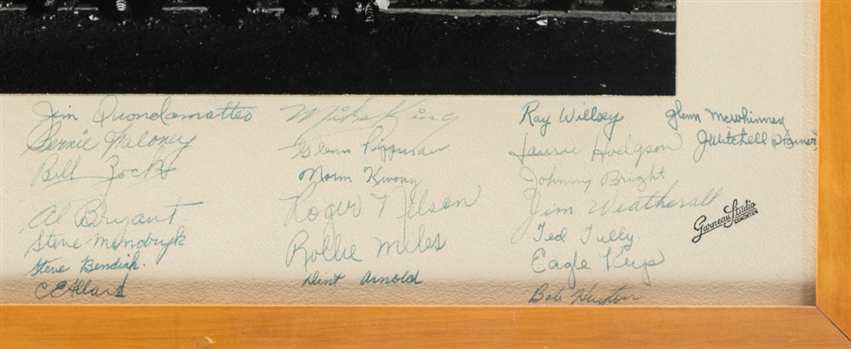 Jim Quondamatteo
Bernie Maloney
Bill Zock
Al Bryant
Steve Mendryk
Steve Bendiak.
Mike King
Glenn
Norm Kwong
Roger Nelson
Rollie Miles
Arnold
Ray Willsey
Laurie Hodgson
Johnny Bright
Jim Weatherall
Ted Tully.
Eagle Keys
Bob Heydon
Glenn McWhinney
J Mitchell
Garneau Studio
EDMONTON